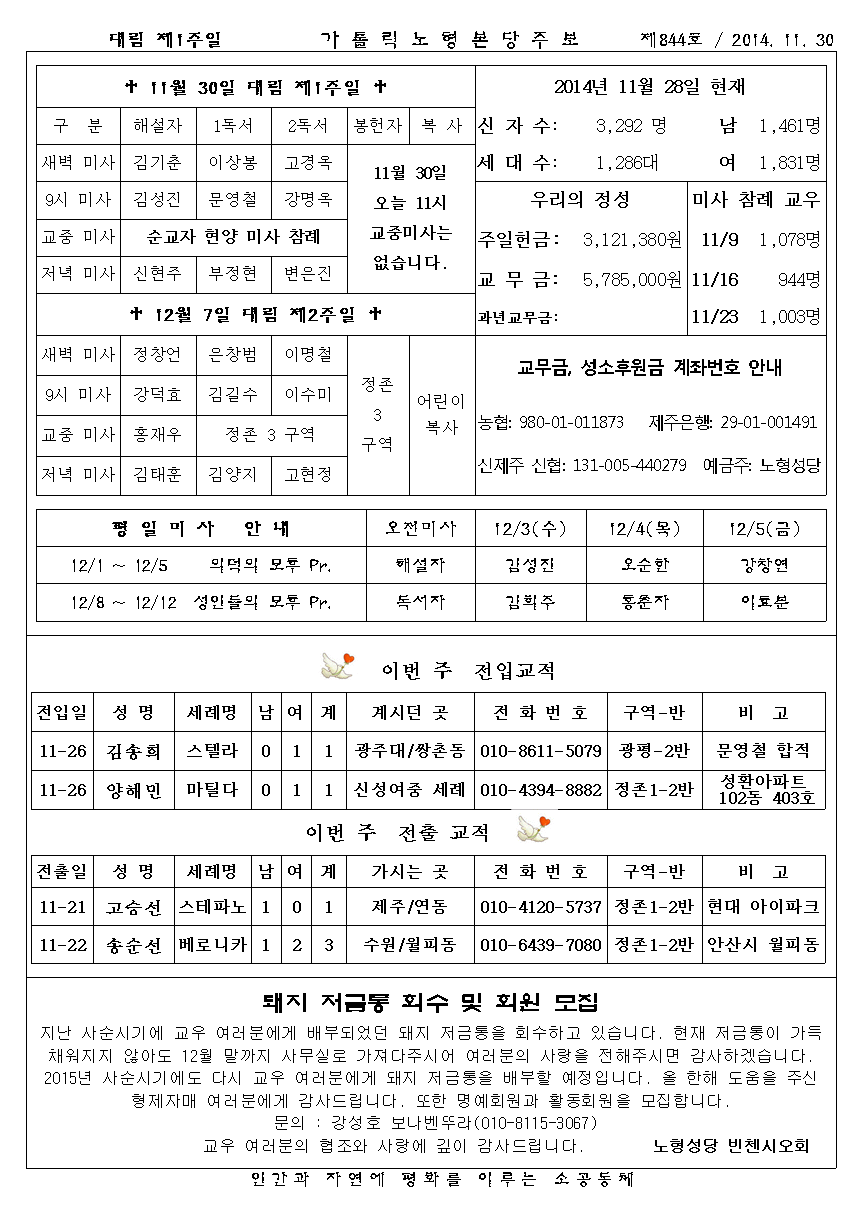 대림 제1주일 가톨릭노형본당주보 제844호 / 2014. 11. 30
✝ 11월 30일 대림 제1주일 ✝
구 분 해설자 1독서 2독서 봉헌자 복 사
새벽 미사 김기춘 이상봉 고경옥
9시 미사 김성진 문영철 강명옥
교중 미사 순교자 현양 미사 참례
저녁 미사 신현주 부정현 변은진
11월 30일
오늘 11시
교중미사는
없습니다.
✝ 12월 7일 대림 제2주일 ✝
새벽 미사 정창언 은창범 이명철
9시 미사 강덕효 김길수 이수미
교중 미사 홍재우 정존 3 구역
저녁 미사 김태훈 김양지 고현정
정존
3
구역
어린이
복사
2014년 11월 28일 현재
신 자 수: 3,292 명 남 1,461명
세 대 수: 1,286대 여 1,831명
우리의 정성 미사 참례 교우
주일헌금: 3,121,380원 11/9 1,078명
교 무 금: 5,785,000원 11/16 944명
과년교무금: 11/23 1,003명
교무금, 성소후원금 계좌번호 안내
농협: 980-01-011873 제주은행: 29-01-001491
신제주 신협: 131-005-440279 예금주: 노형성당
평 일 미 사 안 내 오전미사 12/3(수) 12/4(목) 12/5(금)
12/1 ~ 12/5 의덕의 모후 Pr. 해설자 김성진 오순한 강창연
12/8 ~ 12/12 성인들의 모후 Pr. 독서자 김희주 홍춘자 이효분
이번 주 전입교적
전입일 성 명 세례명 남 여 계 계시던 곳 전 화 번 호 구역-반 비 고
11-26 김송희 스텔라 0 1 1 광주대/쌍촌동 010-8611-5079 광평-2반 문영철 합적
11-26 양해민 마틸다 0 1 1 신성여중 세례 010-4394-8882 정존1-2반 성환아파트
102동 403호
이번 주 전출 교적
전출일 성 명 세례명 남 여 계 가시는 곳 전 화 번 호 구역-반 비 고
11-21 고승선 스테파노 1 0 1 제주/연동 010-4120-5737 정존1-2반 현대 아이파크
11-22 송순선 베로니카 1 2 3 수원/월피동 010-6439-7080 정존1-2반 안산시 월피동
돼지 저금통 회수 및 회원 모집
지난 사순시기에 교우 여러분에게 배부되었던 돼지 저금통을 회수하고 있습니다. 현재 저금통이 가득
채워지지 않아도 12월 말까지 사무실로 가져다주시어 여러분의 사랑을 전해주시면 감사하겠습니다.
2015년 사순시기에도 다시 교우 여러분에게 돼지 저금통을 배부할 예정입니다. 올 한해 도움을 주신
형제자매 여러분에게 감사드립니다. 또한 명예회원과 활동회원을 모집합니다.
문의 : 강성호 보나벤뚜라(010-8115-3067)
교우 여러분의 협조와 사랑에 깊이 감사드립니다. 노형성당 빈첸시오회
인간과 자연에 평화를 이루는 소공동체